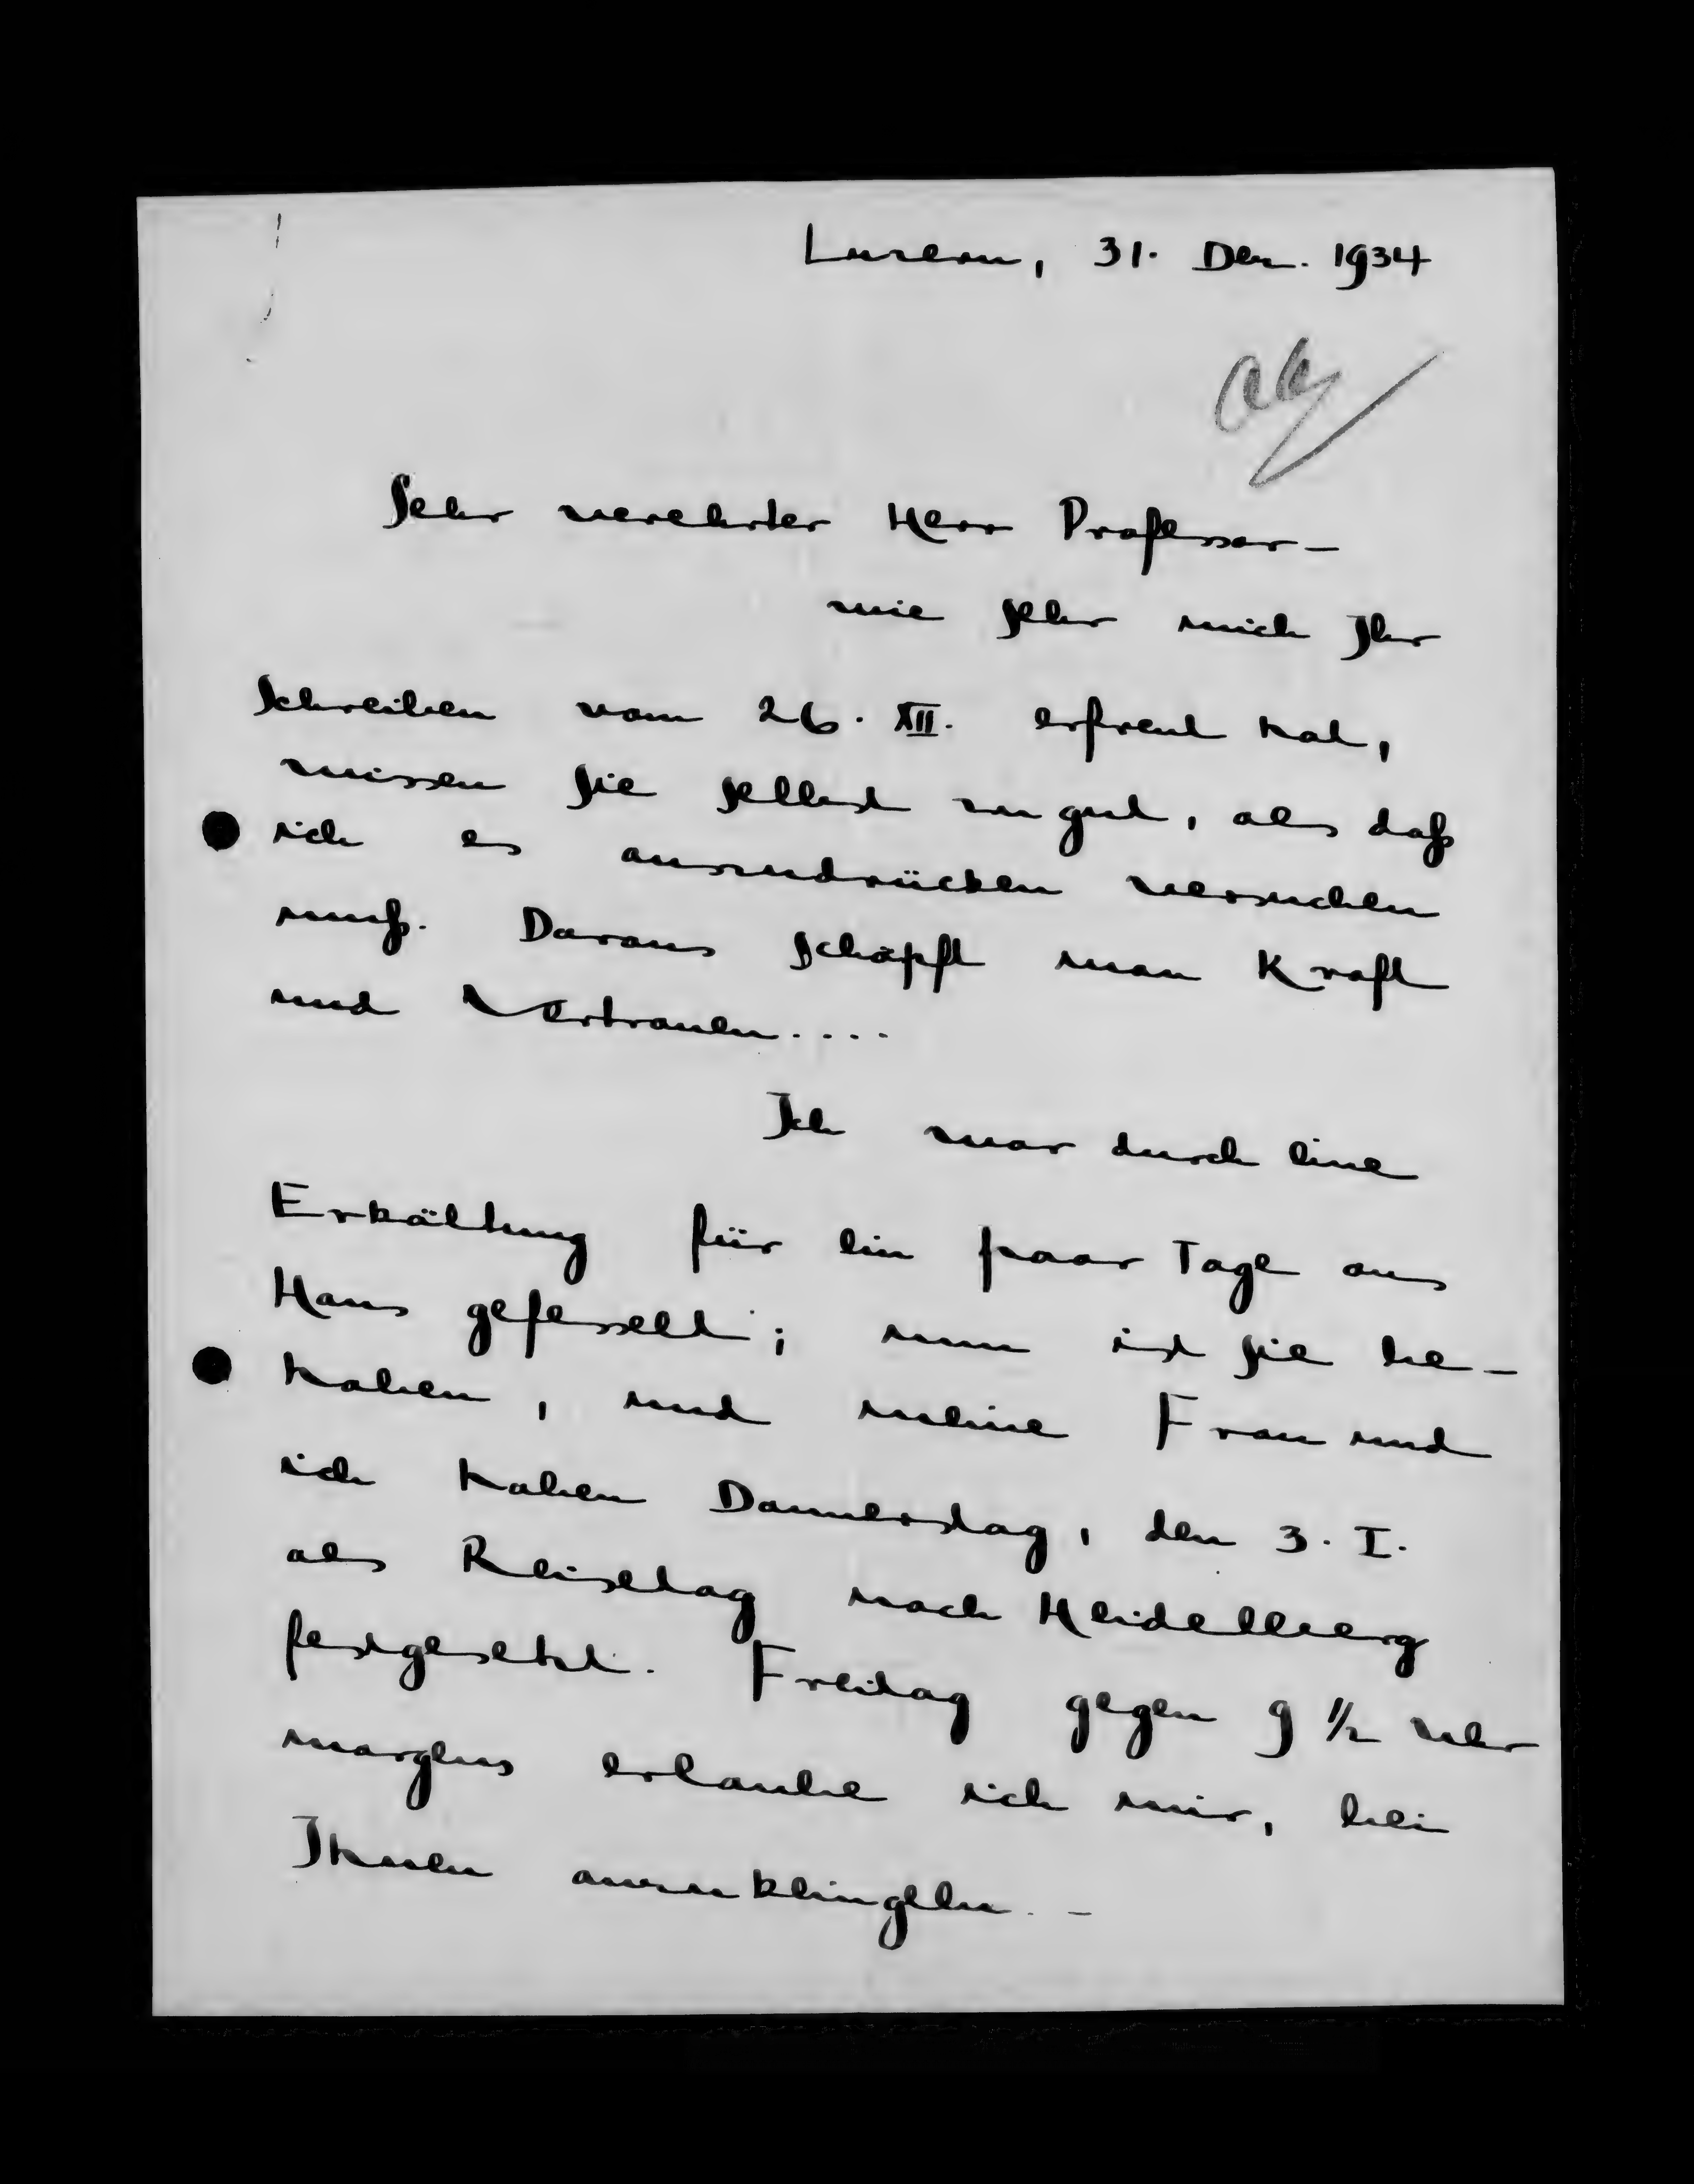 Luzern, 31. Dez. 1934
Sehr verehrter Herr Professor –
wie sehr mich Ihr
Schreiben vom 26. XII. erfreut hat,
wissen Sie selbst zu gut, als daß
ich es auszudrücken versuchen
muß. Daraus schöpft man Kraft
und Vertrauen....
Ich war durch eine
Erkältung für ein paar Tage ans
Haus gefesselt; nun ist sie be-
hoben, und meine Frau und
ich haben Donnerstag, den 3. I.
als Reisetag nach Heidelberg
festgesetzt. Freitag gegen 9 1/2 Uhr
morgens erlaube ich mir, bei
Ihnen anzuklingeln. –